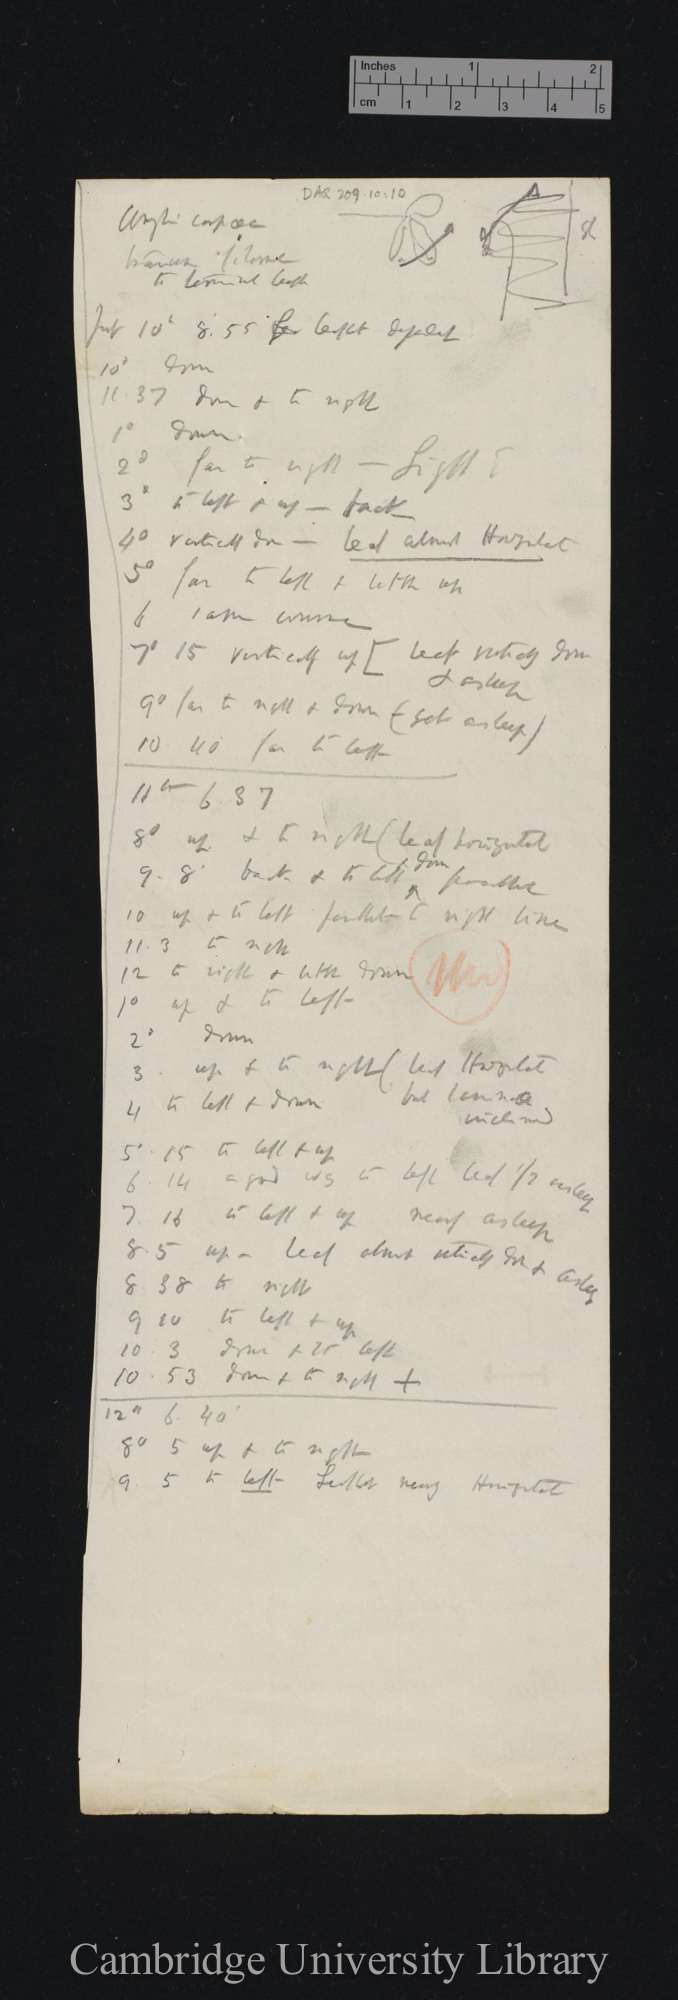 Inches 1 2
cm 1 2 3 4 5
DAR 209.10:10
transverse filament
to terminal leaflet
10° 8.55 leaflet
10° down
11.37 down & to right
1° down
2° far to right — Light
3° to left & up — back
4° vertically down — leaf almost Horizontal
5° far to left & little up
6 same course
7° 15 vertically up [ leaf vertically down
& asleep
9° far to right & down (get asleep)
10 40 far to left
11th 6.37
8° up & to right (leaf horizontal
9. 8 back & to left & down parallel
10 up & to left parallel to right line
11.3 to right
12 to right & little down
1° up & to left
2° down
3. up & to right (leaf Horizontal
4 to left & down but lamina
inclined
5°.15 to left & up
6.14 a good way to left leaf 1/2 asleep
7.16 to left & up nearly asleep
8.5 up — leaf almost vertically down & asleep
8 38 to right
9 10 to left & up
10 3 down & to left
10.53 down & to right +
12th 6.40'
8° 5 up & to right
9. 5 to left Leaflet nearly Horizontal
Cambridge University Library